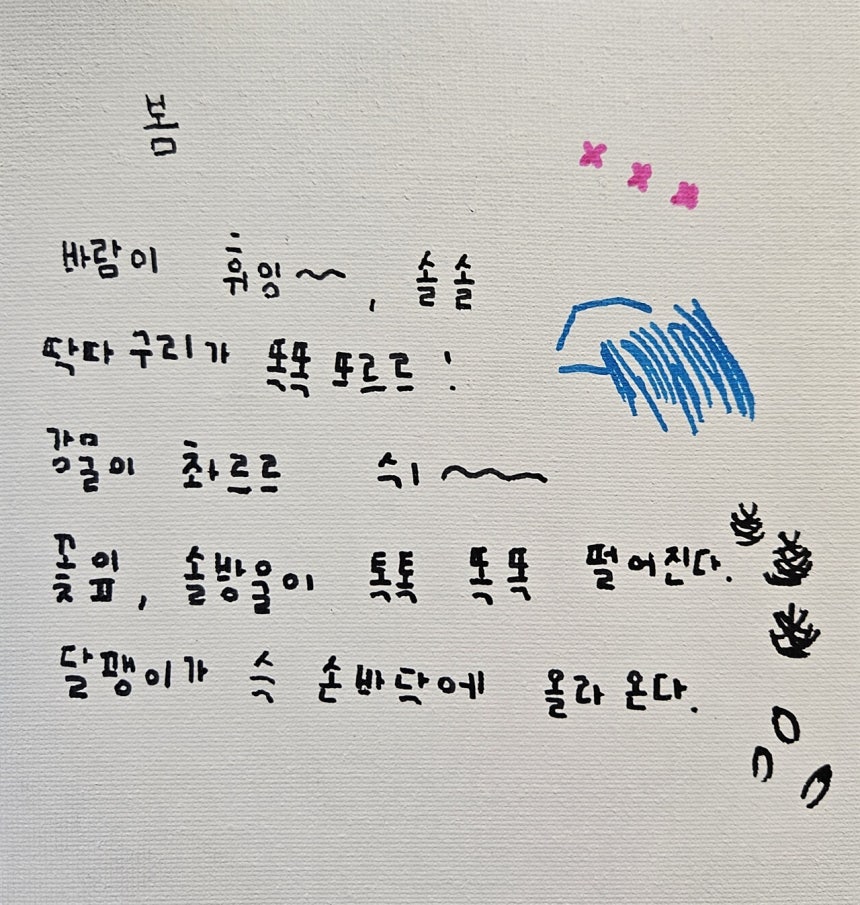 봄
바람이 휘잉~ , 솔솔
딱따구리가 똑똑 또르르!
강물이 촤르르 쉬~
꽃잎, 솔방울이 톡톡 똑똑 떨어진다.
달팽이가 슥 손바닥에 올라온다.